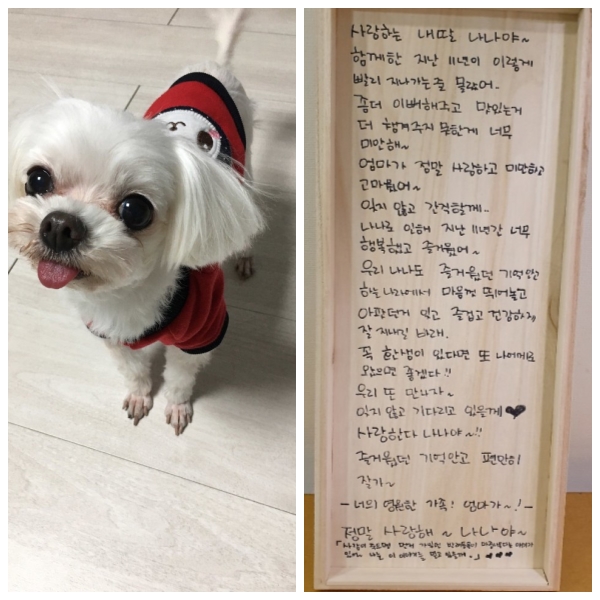 사랑하는 내딸 나나야~
함께한 지난 11년이 이렇게
빨리 지나가는줄 몰랐어.
좀더 이뻐해주고 맛있는거
더 챙겨주지 못한게 너무
미안해~
엄마가 정말 사랑하고 미안하고
고마웠어~
잊지 않고 간직할께..
나나로 인해 지난 11년간 너무
행복했고 즐거웠어~
우리 나나도 즐거웠던 기억안고
하늘나라에서 마음껏 뛰어놀고
아팠던거 잊고 즐겁고 건강하게
잘 지내길 바래.
꼭 환생이 있다면 또
왔으면 좋겠다!!
우리 또 만나자~
잊지 않고 기다리고 있을께♥
사랑한다 나나야~!!
즐거웠던 기억안고 편안히
잘가~
-너의 영원한 가족! 엄마가~!-
정말 사랑해~ 나나야~
먼저 가있던
나는 이 이야기를 믿고 있을께."♥♥♥